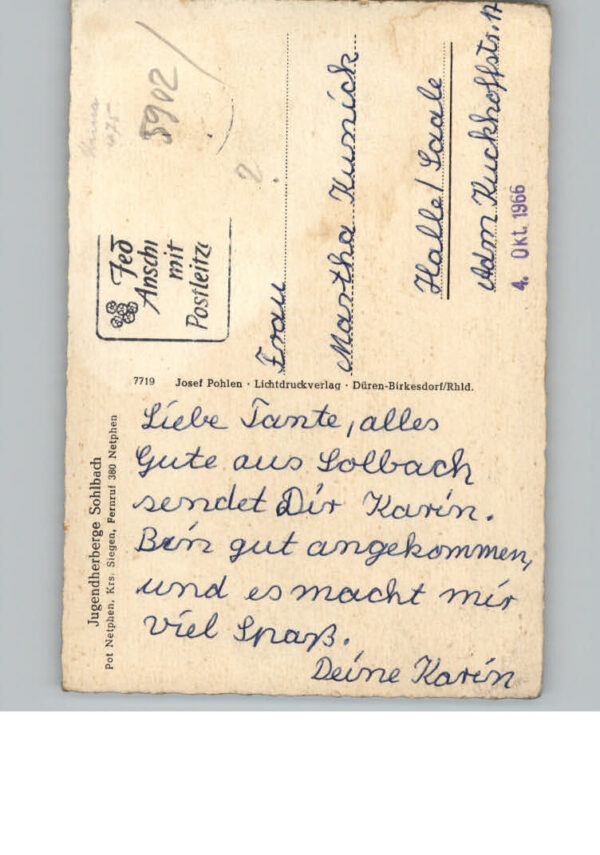 Liebe Tante, alles
Gute aus Solbach
sendet Dir Karin.
Bin gut angekommen,
und es macht mir
viel Spaß.
Deine Karin
7719 Josef Pohlen · Lichtdruckverlag · Düren-Birkesdorf/Rhld.
Jugendherberge Sohlbach
Pot Netphen, Krs. Siegen, Fernruf 380 Netphen
Jed
Anschr
mit
Postleitz
5902
2
Frau
Martha Kunick
Halle/Saale
Adm Kuckhoffstr. 17
4. Okt. 1966